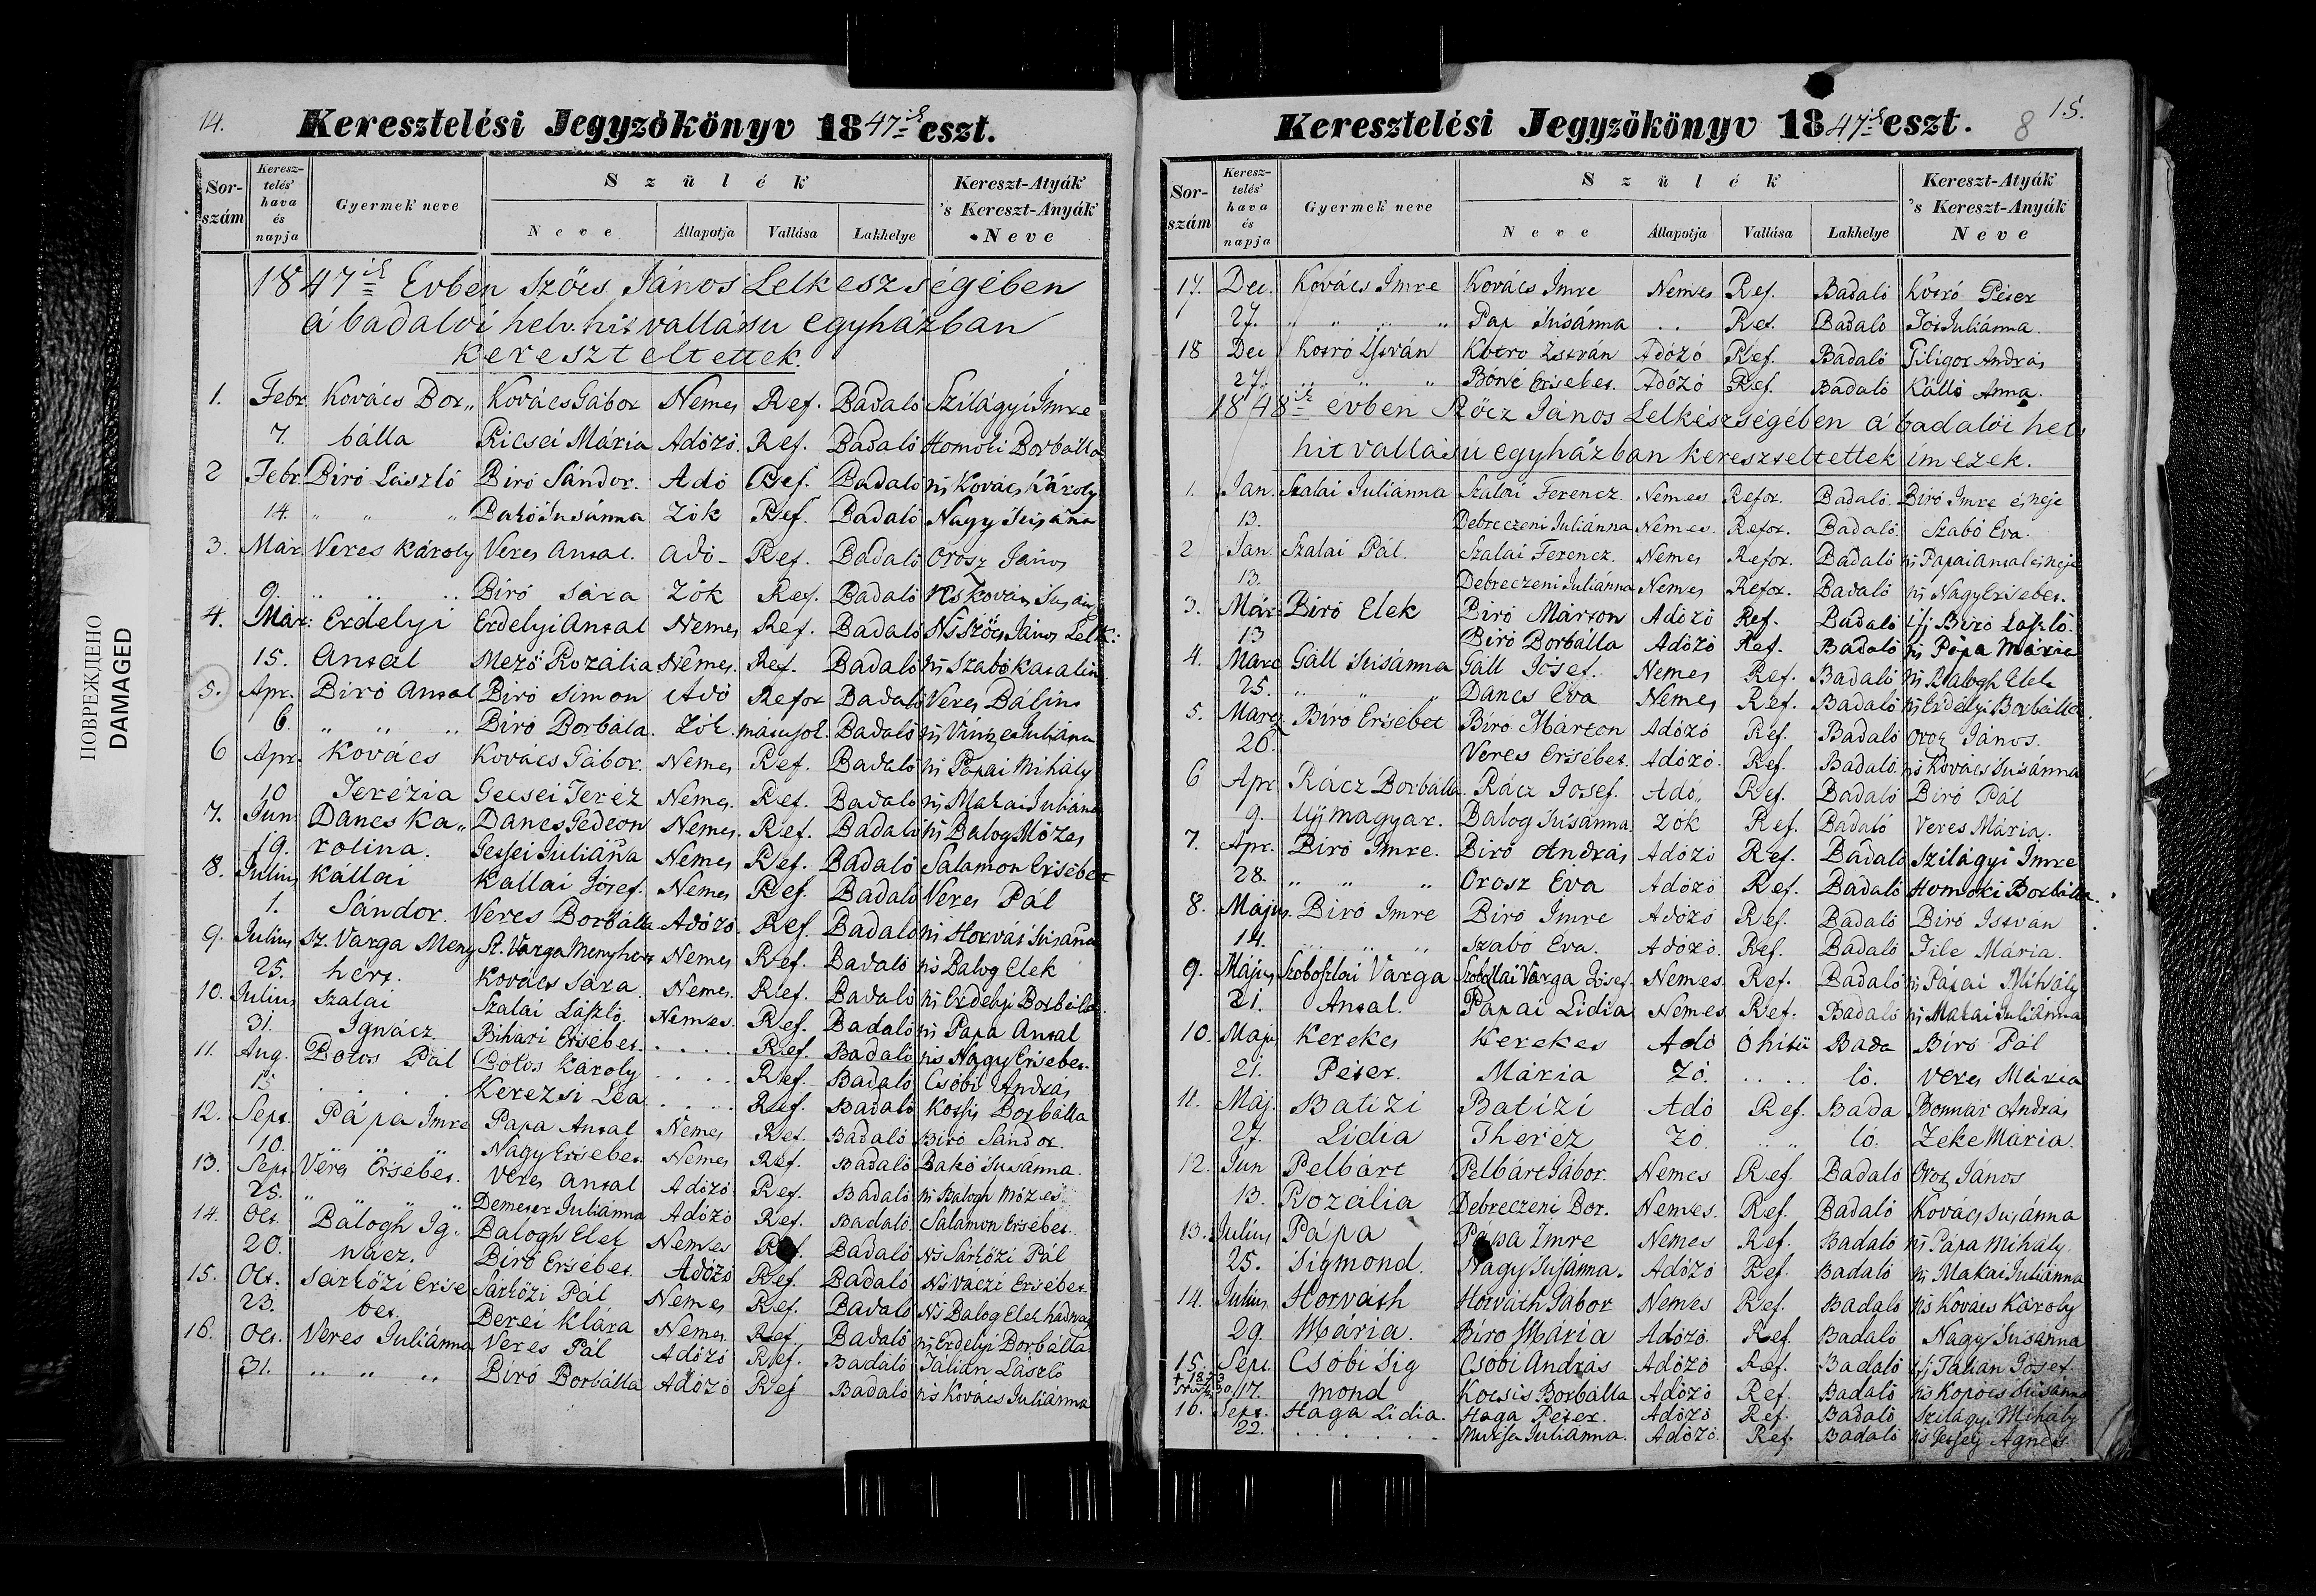 ПОВРЕЖДЕНО
DAMAGED
14.
Keresztelési Jegyzőkönyv 1847ik eszt.
Sor-szám Keresz-telés' hava és napja Gyermek neve Szülék Kereszt-Atyák 's Kereszt-Anyák Neve
Neve Állapotja Vallása Lakhelye
1847ik Evben Szőcs János Lelkeszségében
á badalói helv. hitvallásu egyházban
kereszteltettek.
1. Febr Kovács Bor„ Kovács Gábor Nemes Ref. Badaló Szilágyi Imre
7. bálla Ricsei Mária Adózó. Ref. Badaló Homoki Borbálla
2 Febr. Biró László Biró Sándor. Adó Ref. Badaló ns Kovács Károly
14. „ „ „ Bakó Susánna Zók Ref. Badaló Nagy Susána
3. Mar. Veres Károly Veres Antal. adó- Ref. Badaló Orosz János
9. „ „ „ Biró Sára Zók Ref. Badaló Kovács
4. Mar: Erdelyi Erdelyi Antal Nemes Ref. Badaló Ns Szőcs János Lelk:
15. Antal Mező Rozália Nemes. Ref. Badaló ns Szabó Katalin
5. Apr. Biró Antal Biró Simon Adó Refor Badaló Veres Bálint
6. „ „ „ Biró Borbála. Zók. Badaló ns Vincze Juliána
6 Apr. Kovács Kovács Gábor. Nemes Ref. Badaló ns Pápai Mihály
10 Terézia Gecsei Teréz Nemes. Ref. Badaló ns Makai Juliána
7. Jun Dancs Ka„ Dancs Gedeon Nemes. Ref. Badaló ns Balog Mózes
19. rolina. Juliána Nemes Ref. Badaló Salamon Ersébet
8. Julius Kállai Kallai Jósef. Nemes Ref. Badaló Veres Pál
1. Sándor. Veres Borbálla Adózó. Ref. Badaló ns Horvát Susána
9. Julius Sz. Varga Meny Sz. Varga Menyhert Nemes Ref. Badaló ns Balog Elek
25. hert. Kovács Sára. Nemes. Ref. Badaló ns Erdelyi Borbála
10. Julius Szalai Szalai László. Nemes. Ref. Badaló ns Papa Antal
31. Ignácz Bihari Ersébet. . . . . Ref. Badaló ns Nagy Ersebet.
11. Aug. Botos Pál Botos Károly . . . . Ref. Badaló Csóbi András
15 . . . . Kerezsi Lea . . . . Ref. Badaló Kotsis Borbálla
12. Sept. Pápa Imre Papa Antal Nemes Ref. Badaló Biró Sándor.
10. „ „ „ Nagy Ersebet. Nemes Ref. Badaló Bakó Susánna.
13. Sept Veres Ersébet. Veres Antal Adózó Ref. Badaló ns Balogh Mózes
25. „ „ „ Demeter Juliánna Adózó Ref. Badaló. Salamon Ersébet.
14. Oct. Balogh Ig„ Balogh Elek Nemes Ref. Badaló Ns Sarközi Pál
20. nácz. Biró Ersébet. Adózó Ref. Badaló Ns Váczi Ersébet.
15. Oct. Sarközi Erse Sarközi Pál Nemes Ref. Badaló Ns Balog Elek hadnagy
23. bet. Berei Klára Nemes. Ref. Badaló ns Erdelyi Borbálla
16. Oct. Veres Juliánna Veres Pál Adózó Ref. Badaló Talian László
31. „ „ „ Biró Borbálla Adózó Ref Badaló ns Kovacs Juliánna
15.
8
Keresztelési Jegyzőkönyv 1847ik eszt.
Sor-szám Keresz-telés' hava és napja Gyermek neve Szülék Kereszt-Atyák 's Kereszt-Anyák Neve
Neve Állapotja Vallása Lakhelye
17. Dec. Kovács Imre Kovács Imre Nemes Ref. Badaló Kotró Péter
27. „ „ „ „ Pap Susánna . . Ref. Badaló Juliánna.
18 Dec Kotró István Kotro István Adózó Ref. Badaló Giligor András
27. „ „ „ Ersebet. Adózó Ref. Badaló Kálló Anna.
1848ik évben Szőcz János Lelkészségében á badalói helv
hitvallásu egyházban kereszteltettek imezek.
1. Jan. Szalai Juliánna Szalai Ferencz Nemes Refor. Badaló. Biró Imre és neje
13. Debreczeni Juliánna Nemes. Refor. Badaló. Szabó Éva.
2 Jan. Szalai Pál. Szalai Ferencz. Nemes Refor. Badaló ns Papai Antal és neje
13. Debreczeni Juliánna Nemes Refor. Badaló ns Nagy Ersebet.
3. Már: Biró Elek Biró Márton Adózó Ref. Badaló ifj Biró László.
13 Biró Borbálla Adózó Ref. Badaló ns Pápa Mária
4. Marc Gáll Susánna Gáll Jósef. Nemes Ref. Badaló ns Balogh Elek
25. „ „ „ Dancs Éva Nemes Ref. Badaló ns Erdélyi Borbálla.
5. Marcz Biró Ersébet Biró Márton Adózó Ref. Badaló Orosz János.
26. Veres Ersébet. Adózó. Ref. Badaló. ns Kovács Susánna
6 Apr Rácz Borbálla. Rácz Josef. Adó„ Ref. Badaló Biró Pál
9. Ujmagyar. Balog Susánna. zók Ref. Badaló Veres Mária.
7. Apr. Biró Imre. Biró András Adózó Ref. Badaló Szilágyi Imre
28. „ „ „ Orosz Éva Adózó Ref. Badaló Homoki Borbálla.
8. Május. Biró Imre Biró Imre Adózó Ref. Badaló Biró István
14. „ „ „ Szabó Éva. Adózó. Ref. Badaló Mária.
9. Május Szoboszlai Varga Szoboszlai Varga Jósef. Nemes. Ref. Badaló ns Pápai Mihály
21. Antal. Pápai Lidia Nemes Ref. Badaló ns Makai Juliánna
10. Maju Kerekes Kerekes Adó Óhitü Bada Biró Pál
21. Péter. Mária Zó. . . . . ló. Veres Mária
11. Máj. Batizi Batizi Adó Ref. Bada András
27. Lidia Theréz Zó „ „ ló. Zeke Mária.
12. Jun Pelbárt Pelbárt Gábor. Nemes Ref. Badaló Orosz János
13. Rozália Debreczeni Bor. Nemes. Ref. Badaló Kovács Susánna
13. Julius Pápa Pápa Imre Nemes Ref. Badaló ns Pápa Mihály.
25. Sigmond. Nagy Susánna. Adózó Ref. Badaló ns Makai Juliánna
14. Julius Horváth Horváth Gábor Nemes Ref. Badaló ns Kovács Károly
29. Mária. Biró Mária Adózó. Ref. Badaló Nagy Susánna
15. Sept. Csóbi Sig Csóbi András Adózó Ref. Badaló ifj Talian Jósef
17. mond Kocsis Borbálla Adózó Ref. Badaló ns Susánna
16. Sept. Haga Lidia. Haga Péter. Adózó Ref. Badaló Szilágyi Mihály
22. . . . . . Juliánna. Adózó. Ref. Badaló Agnes